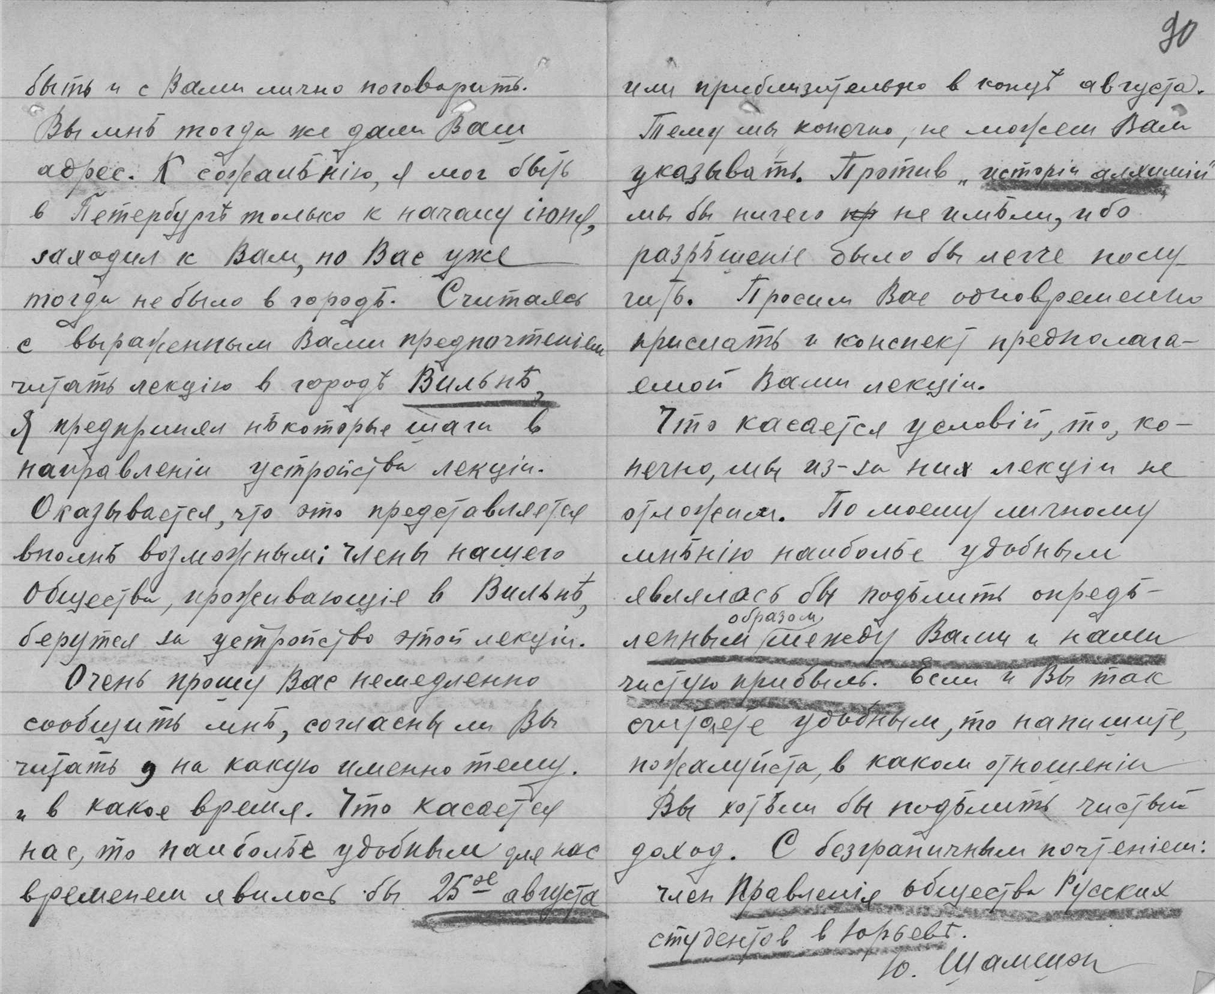 90
быть и с Вами лично поговорить.
Вы мнѣ тогда же дали Ваш
адрес. К сожалѣнію, я мог быть
в Петербургѣ только к началу іюня,
заходил к Вам, но Вас уже
тогда не было в городѣ. Считаясь
с выраженным Вами предпочтеніем
читать лекцію в городѣ Вильнѣ,
я предпринял нѣкоторые шаги в
направленіи устройства лекціи.
Оказывается, что это представляется
вполнѣ возможным: члены нашего
Общества, проживающіе в Вильнѣ,
берутся за устройство этой лекціи.
Очень прошу Вас немедленно
сообщить мнѣ, согласны ли Вы
читать, на какую именно тему.
и в какое время. Что касается
нас, то наиболѣе удобным для нас
временем явилось бы 25ое августа
или приблизительно в концѣ августа.
Тему мы конечно, не можем Вам
указывать. Против „исторіи алхиміи“
мы бы ничего не имѣли, ибо
разрѣшеніе было бы легче полу-
чить. Просим Вас одновременно
прислать и конспект предполага-
емой Вами лекціи.
Что касается условій, то, ко-
нечно, мы из-за них лекціи не
отложим. По моему личному
мнѣнію наиболѣе удобным
являлась бы подѣлить опредѣ-
ленным образом между Вами и нами
чистую прибыль. Если и Вы так
считаете удобным, то напишите,
пожалуйста, в каком отношеніи
Вы хотѣли бы подѣлить чистый
доход. С безграничным почтеніем:
член Правленія общества Русских
студентов в Юрьевѣ.
Ю.